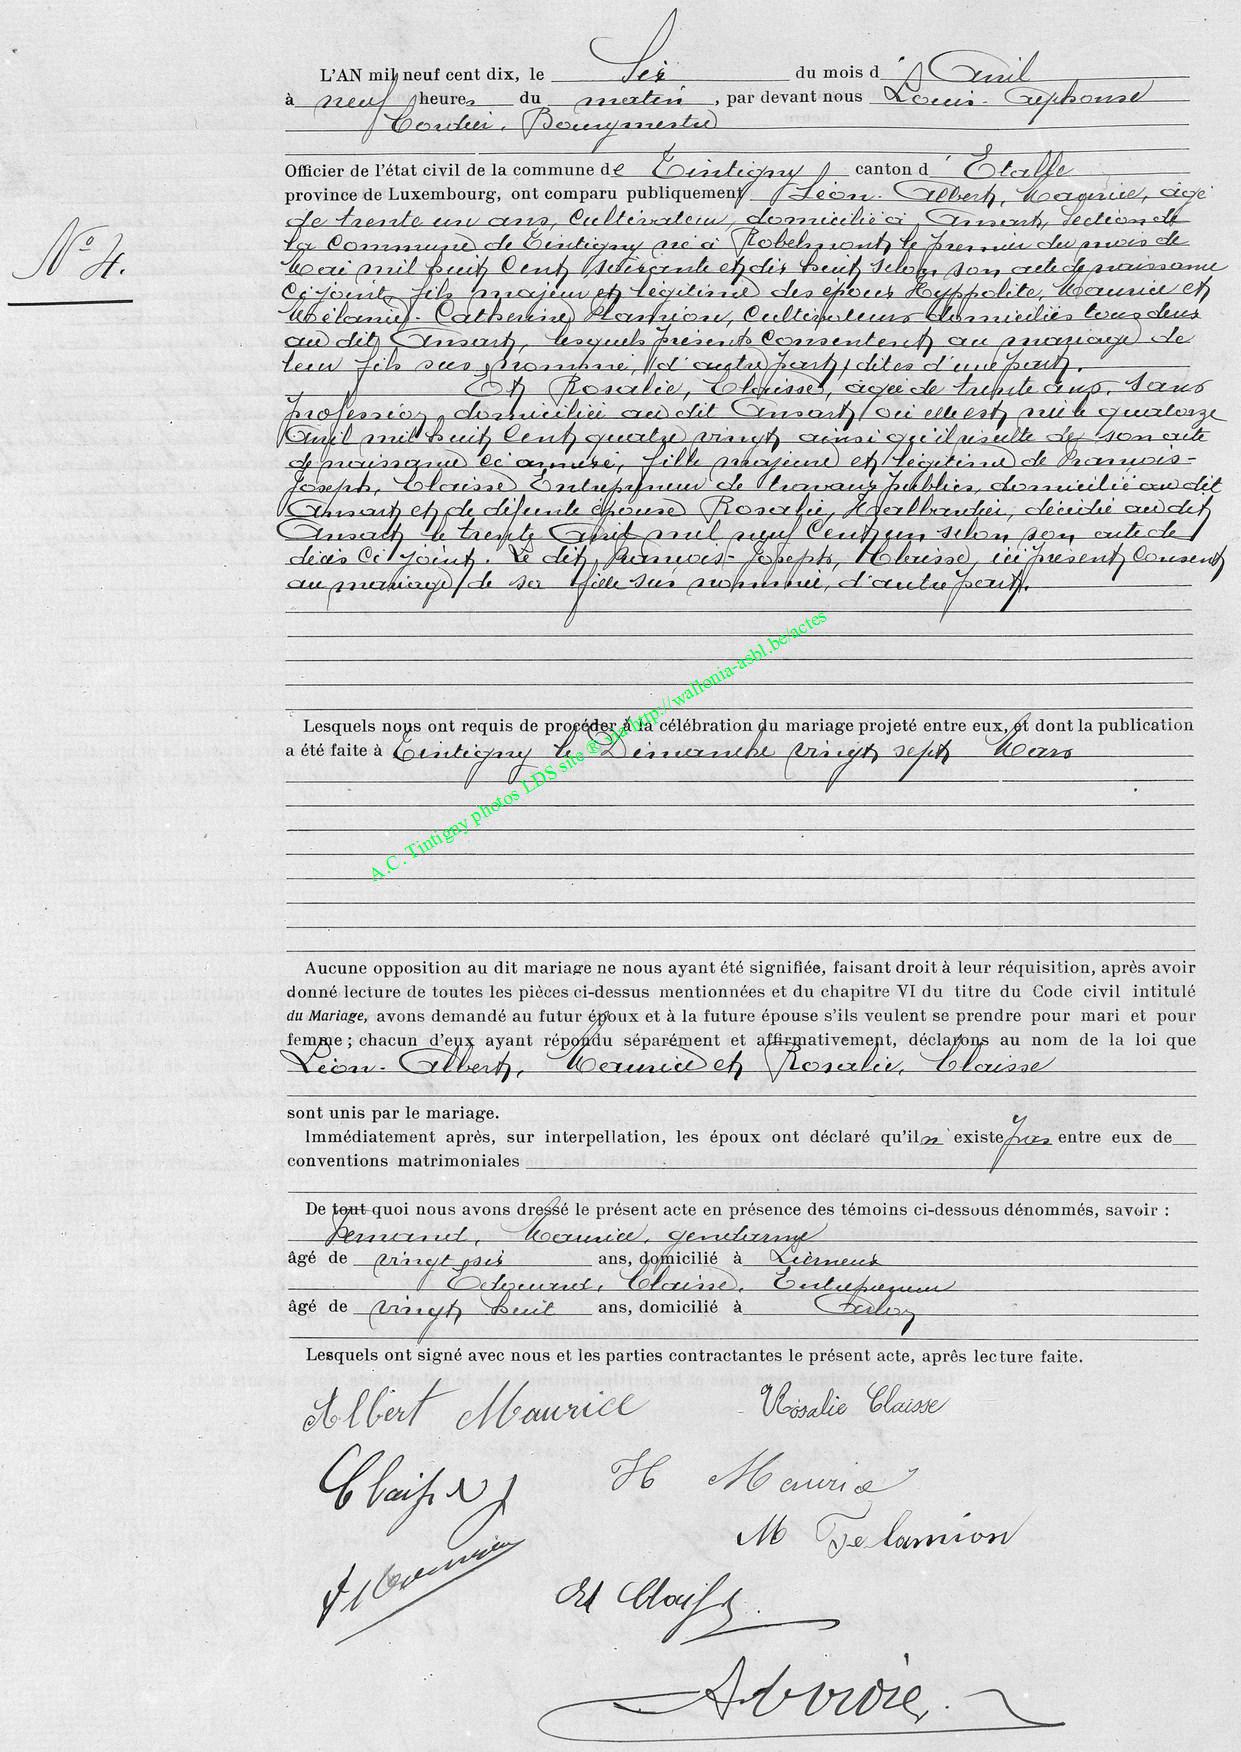 L'AN mil neuf cent dix, le Six du mois d'Avril
à neuf heures du matin, par devant nous Louis-Alphonse
Cordier, Bourgmestre
Officier de l'état civil de la commune de Tintigny canton d'Etalle
province de Luxembourg, ont comparu publiquement Léon-Albert, Maurice, âgé
de trente un ans, Cultivateur, domicilié à Ansart, Section de
N° 4.
la Commune de Tintigny né à Robelmont le premier du mois de
Mai mil huit Cent soixante et dix huit selon son acte de naissance
Ci joint, fils majeur et légitime des époux Hyppolite, Maurice et
Mélanie-Catherine, Flamion, Cultivateurs domiciliés tous deux
au dit Ansart, lesquels présents Consentent au mariage de
leur fils sus nommé, d'autre part, dites d'une part.
Et Rosalie, Claisse, âgée de trente ans, sans
profession, domiciliée au dit Ansart, où elle est née le quatorze
Avril mil huit Cent quatre vingt ainsi qu'il résulte de son acte
de naissance ci annexé, fille majeure et légitime de François-
Joseph, Claisse Entrepreneur de travaux publics, domicilié au dit
Ansart et de défunte épouse Rosalie, décédée au dit
Ansart le trente Avril mil neuf Cent un selon son acte de
décès Ci joint. Le dit, François-Joseph, Claisse, ici présent Consent
au mariage de sa fille sus nommée, d'autre part.
Lesquels nous ont requis de procéder à la célébration du mariage projeté entre eux, et dont la publication
a été faite à Tintigny le Dimanche vingt sept Mars
A.C. Tintigny photos LDS site ® via http://wallonia-asbl.be/actes
Aucune opposition au dit mariage ne nous ayant été signifiée, faisant droit à leur réquisition, après avoir
donné lecture de toutes les pièces ci-dessus mentionnées et du chapitre VI du titre du Code civil intitulé
du Mariage, avons demandé au futur époux et à la future épouse s'ils veulent se prendre pour mari et pour
femme ; chacun d'eux ayant répondu séparément et affirmativement, déclarons au nom de la loi que
Léon-Albert, Maurice et Rosalie, Claisse
sont unis par le mariage.
Immédiatement après, sur interpellation, les époux ont déclaré qu'il n'existe pas entre eux de
conventions matrimoniales
De tout quoi nous avons dressé le présent acte en présence des témoins ci-dessous dénommés, savoir :
Fernand, Maurice, gendarme
âgé de vingt six ans, domicilié à Lierneux
Edouard, Claisse, Entrepreneur
âgé de vingt huit ans, domicilié à Arlon
Lesquels ont signé avec nous et les parties contractantes le présent acte, après lecture faite.
Albert Maurice Rosalie Claisse
Claisse H Maurice
M Flamion
Ed Claisse
A Cordier